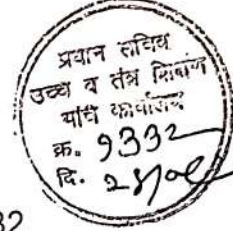 प्रधान सचिव
उच्च व तंत्र शिक्षण
यांचे कार्यालय
क्र. 9332
दि.